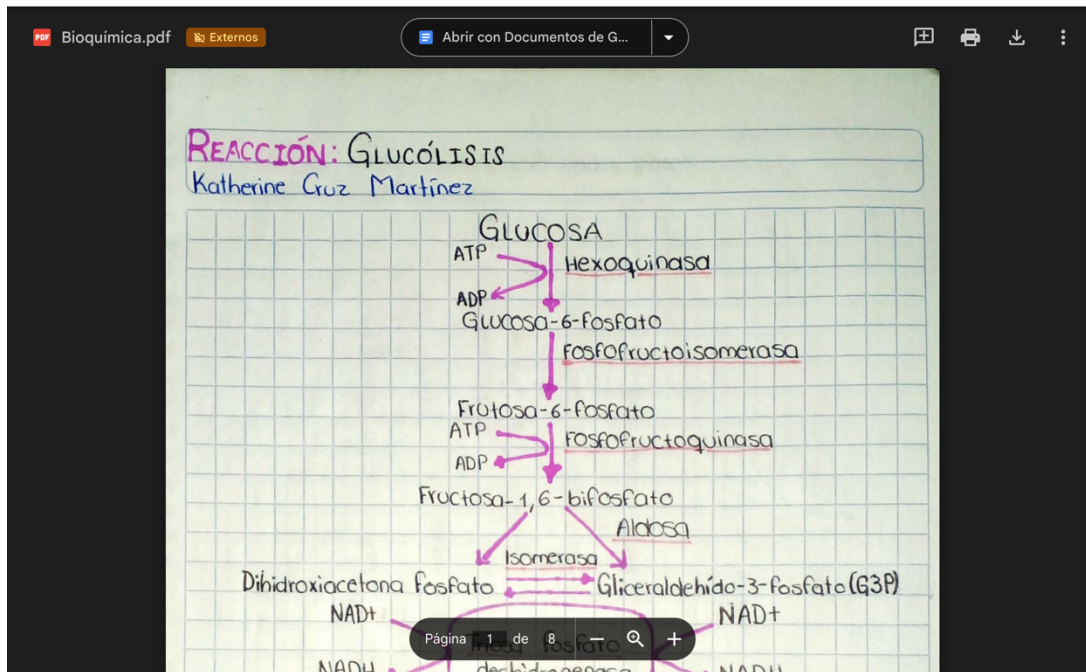 Bioquímica.pdf
Externos
Abrir con Documentos de G...
REACCIÓN: GLUCÓLISIS
Katherine Cruz Martínez
GLUCOSA
ATP
Hexoquinasa
ADP
Glucosa-6-fosfato
Fosfofructoisomerasa
Frutosa-6-fosfato
ATP
Fosfofructoquinasa
ADP
Fructosa-1,6-bifosfato
Aldosa
Isomerasa
Dihidroxiacetona fosfato
Gliceraldehído-3-fosfato (G3P)
NAD+
NAD+
Página 1 de 8
Triosa fosfato
NADH
deshidrogenasa
NADH